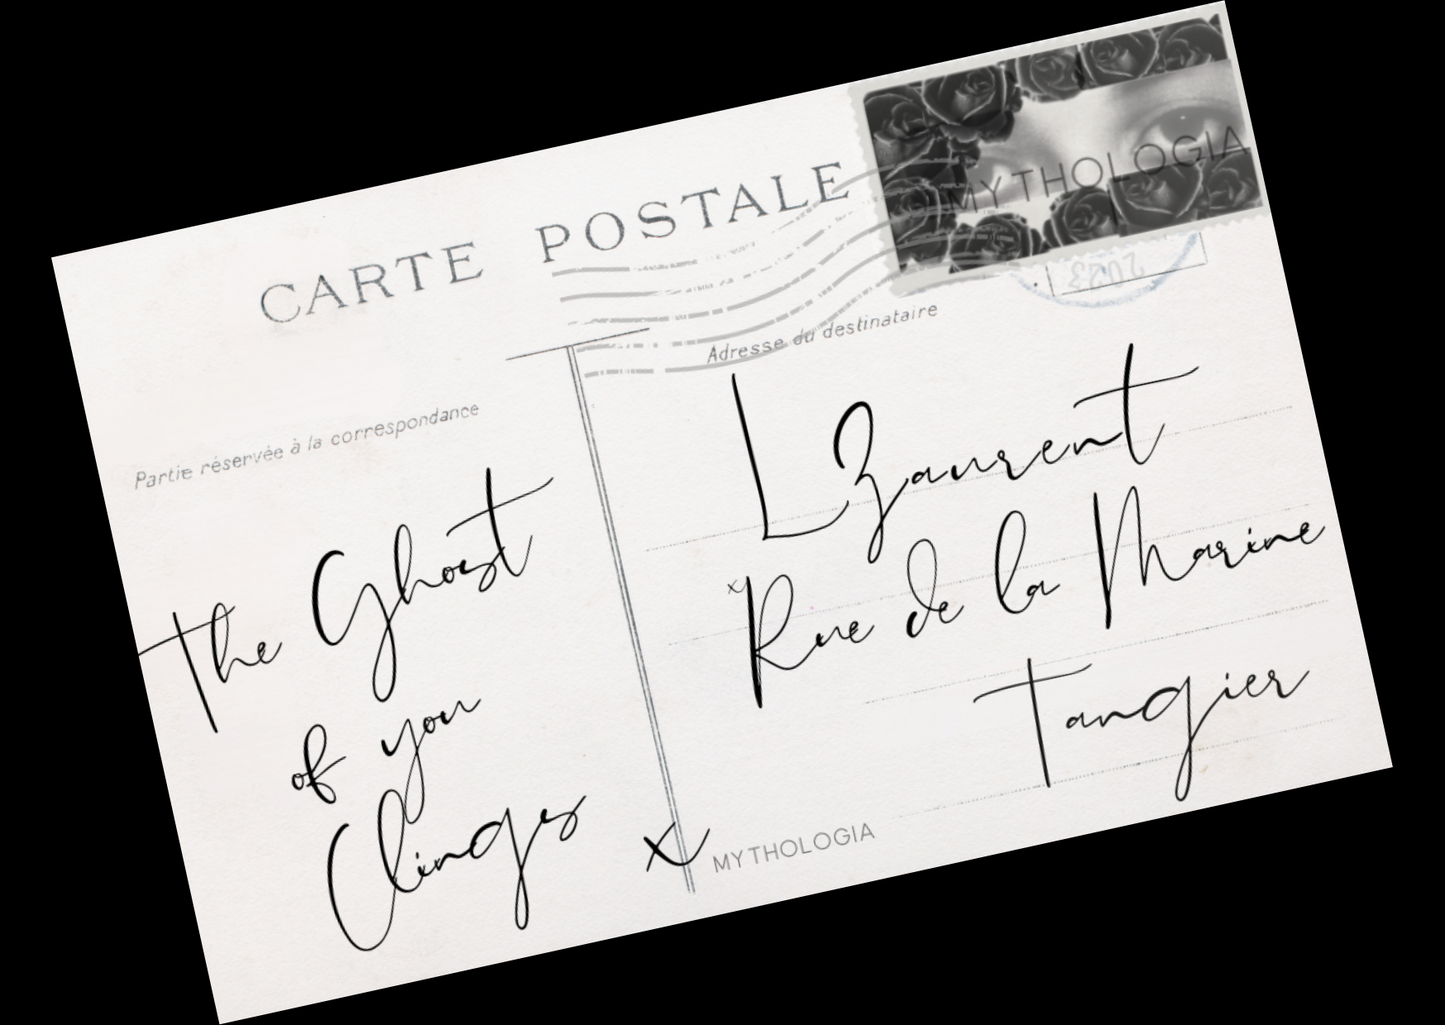 CARTE POSTALE
MYTHOLOGIA
2023
Partie réservée à la correspondance
Adresse du destinataire
The Ghost
of you
Clings
x
L Zaurent
x
Rue de la Marine
Tangier
MYTHOLOGIA